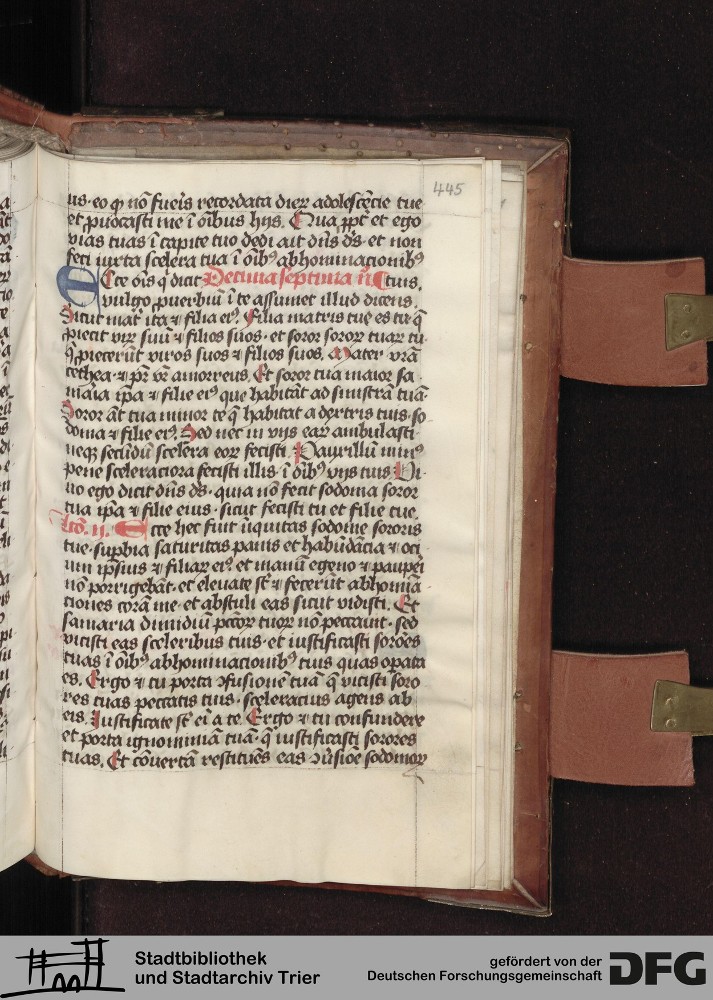 445
us · eo ꝙ nō fueris recordata dieꝝ adolescēcie tue
et ꝓuocasti me ī oībus hijs. Qua ppt̄ et ego
vias tuas ī capite tuo dedi ait dn̄s ds̄ · et non
feci iuxta scelera tua ī oīb⁹ abhominacionib⁹
Ecce oīs q̄ dicit Decima septima
vulgo ꝓuerbiū ī te assumet illud dicens.
Sicut mat̄ ita ⁊ filia ei⁹. Filia matris tue es tu q̄
ꝓiecit viꝝ suū ⁊ filios suos · et soror soroꝝ tuaꝝ tu
q̄ ꝓiecerūt viros suos ⁊ filios suos. Mater vr̄a
cethea · ⁊ pr̄ vr̄ amorreus. Et soror tua maior sa
maria ip̄a ⁊ filie ei⁹ que habitāt ad sinistrā tuā
Soror āt tua minor te q̄ habitat a dextris tuis · so
doma ⁊ filie ei⁹. Sed nec in vijs eaꝝ ambulasti
neqꝫ secūdū scelera eoꝝ fecisti. Pauxillū min⁹
pene sceleraciora fecisti illis · ī oīb⁹ vijs tuis Vi
uo ego dicit dn̄s ds̄ · quia nō fecit sodoma soror
tua ip̄a ⁊ filie eius · sicut fecisti tu et filie tue.
Ecce hec fuit iniquitas sodome sororis
tue · supbia saturitas panis et habūdācia ⁊ oci
um ipsius ⁊ filiaꝝ ei⁹ · et manū egeno ⁊ paupei
nō porrigebāt · et eleuate st̄ ⁊ fecerūt abhomīa
ciones corā me · et abstuli eas sicut vidisti. Et
samaria dimidiū pctōꝝ tuoꝝ nō peccauit · sed
vicisti eas sceleribus tuis · et iustificasti sorōes
tuas ī oīb⁹ abhominacionib⁹ tuis quas opata
es. Ergo ⁊ tu porta ↄfusionē tuā q̄ vicisti soro
res tuas peccatis tuis · sceleracius agens ab
eis. Iustificate st̄ ei ̄ a te. Ergo ⁊ tu confundere
et porta ignominiā tuā · q̄ iustificasti sorores
tuas. Et cōuertā restituēs eas ↄuſioē sodomoꝝ
Stadtbibliothek
und Stadtarchiv Trier
gefördert von der
Deutschen Forschungsgemeinschaft
DFG